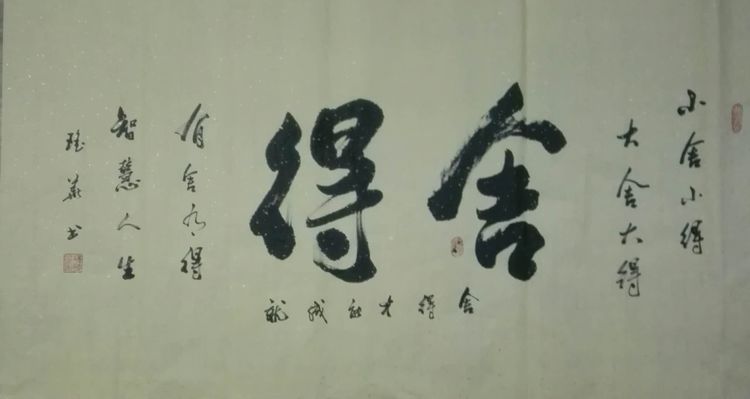 小舍小得
大舍大得
舍得
舍得才能成就
有舍有得
智慧人生
书